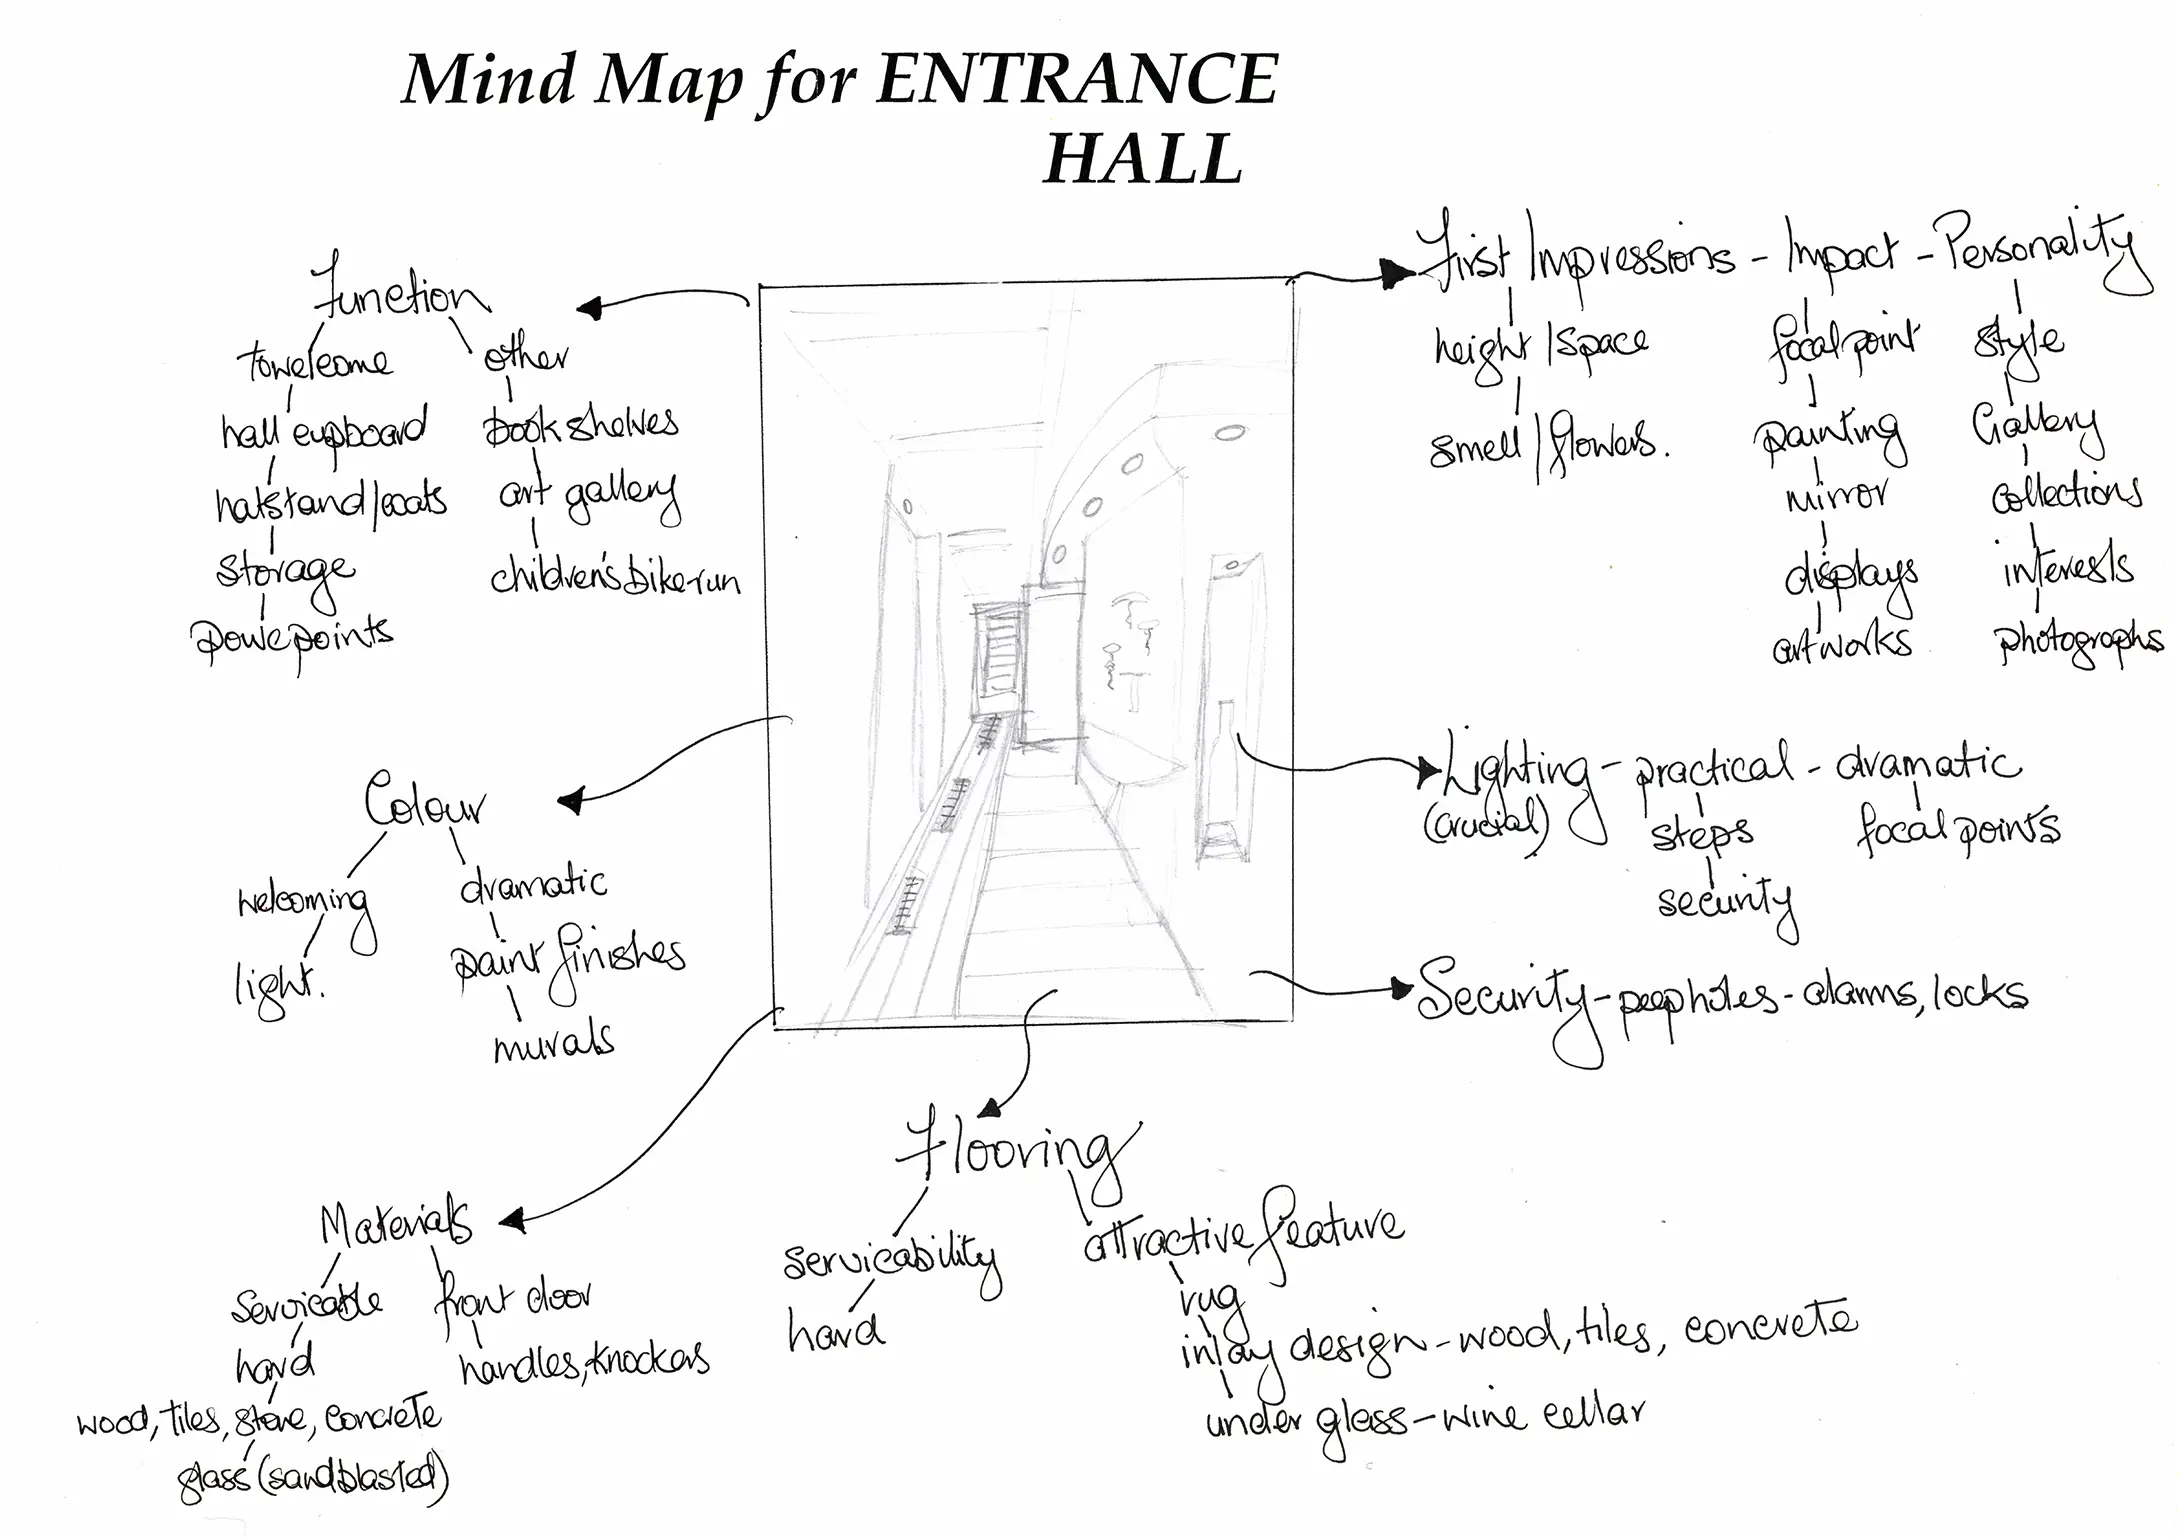 Mind Map for ENTRANCE
HALL
Function
towelcome
hall cupboard
hatstand/coats
storage
powepoints
other
bookshelves
art gallery
children's bike-run
First Impressions - Impact - Personality
height/space
smell/flowers.
focal point
painting
mirror
displays
artworks
style
Gallery
collections
interests
photographs
Colour
welcoming
light.
dramatic
paint finishes
murals
Lighting - practical - dramatic
(crucial)
steps
security
focal points
Security - peepholes - alarms, locks
Materials
Servicable
hard
wood, tiles, stone, concrete
glass (sandblasted)
front door
handles, knockers
Flooring
servicability
hard
attractive feature
rug
inlay design - wood, tiles, concrete
under glass - wine cellar